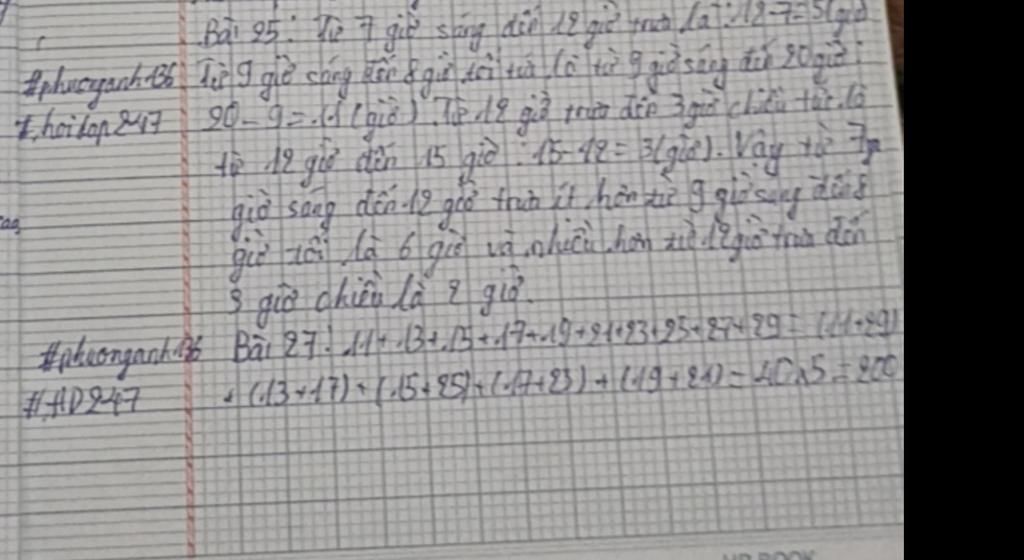 Bài 25: Từ 7 giờ sáng đến 12 giờ trưa là: 12-7=5(giờ
#phuonganh136 Từ 9 giờ sáng đến 8 giờ tối tức là từ 9 giờ sáng đến 20 giờ:
#.hoidap247 20-9=11(giờ). Từ 12 giờ trưa đến 3 giờ chiều tức là
từ 12 giờ đến 15 giờ: 15-12=3(giờ). Vậy từ 7
giờ sáng đến 12 giờ trưa ít hơn từ 9 giờ sáng đến 8
giờ tối là 6 giờ và nhiều hơn từ 12 giờ trưa đến
3 giờ chiều là 2 giờ.
#phuonganh136 Bài 27: 11+13+15+17+19+21+23+25+27+29=(11+29)
#HD247 +(13+17)+(15+25)+(17+23)+(19+21)=40x5=200